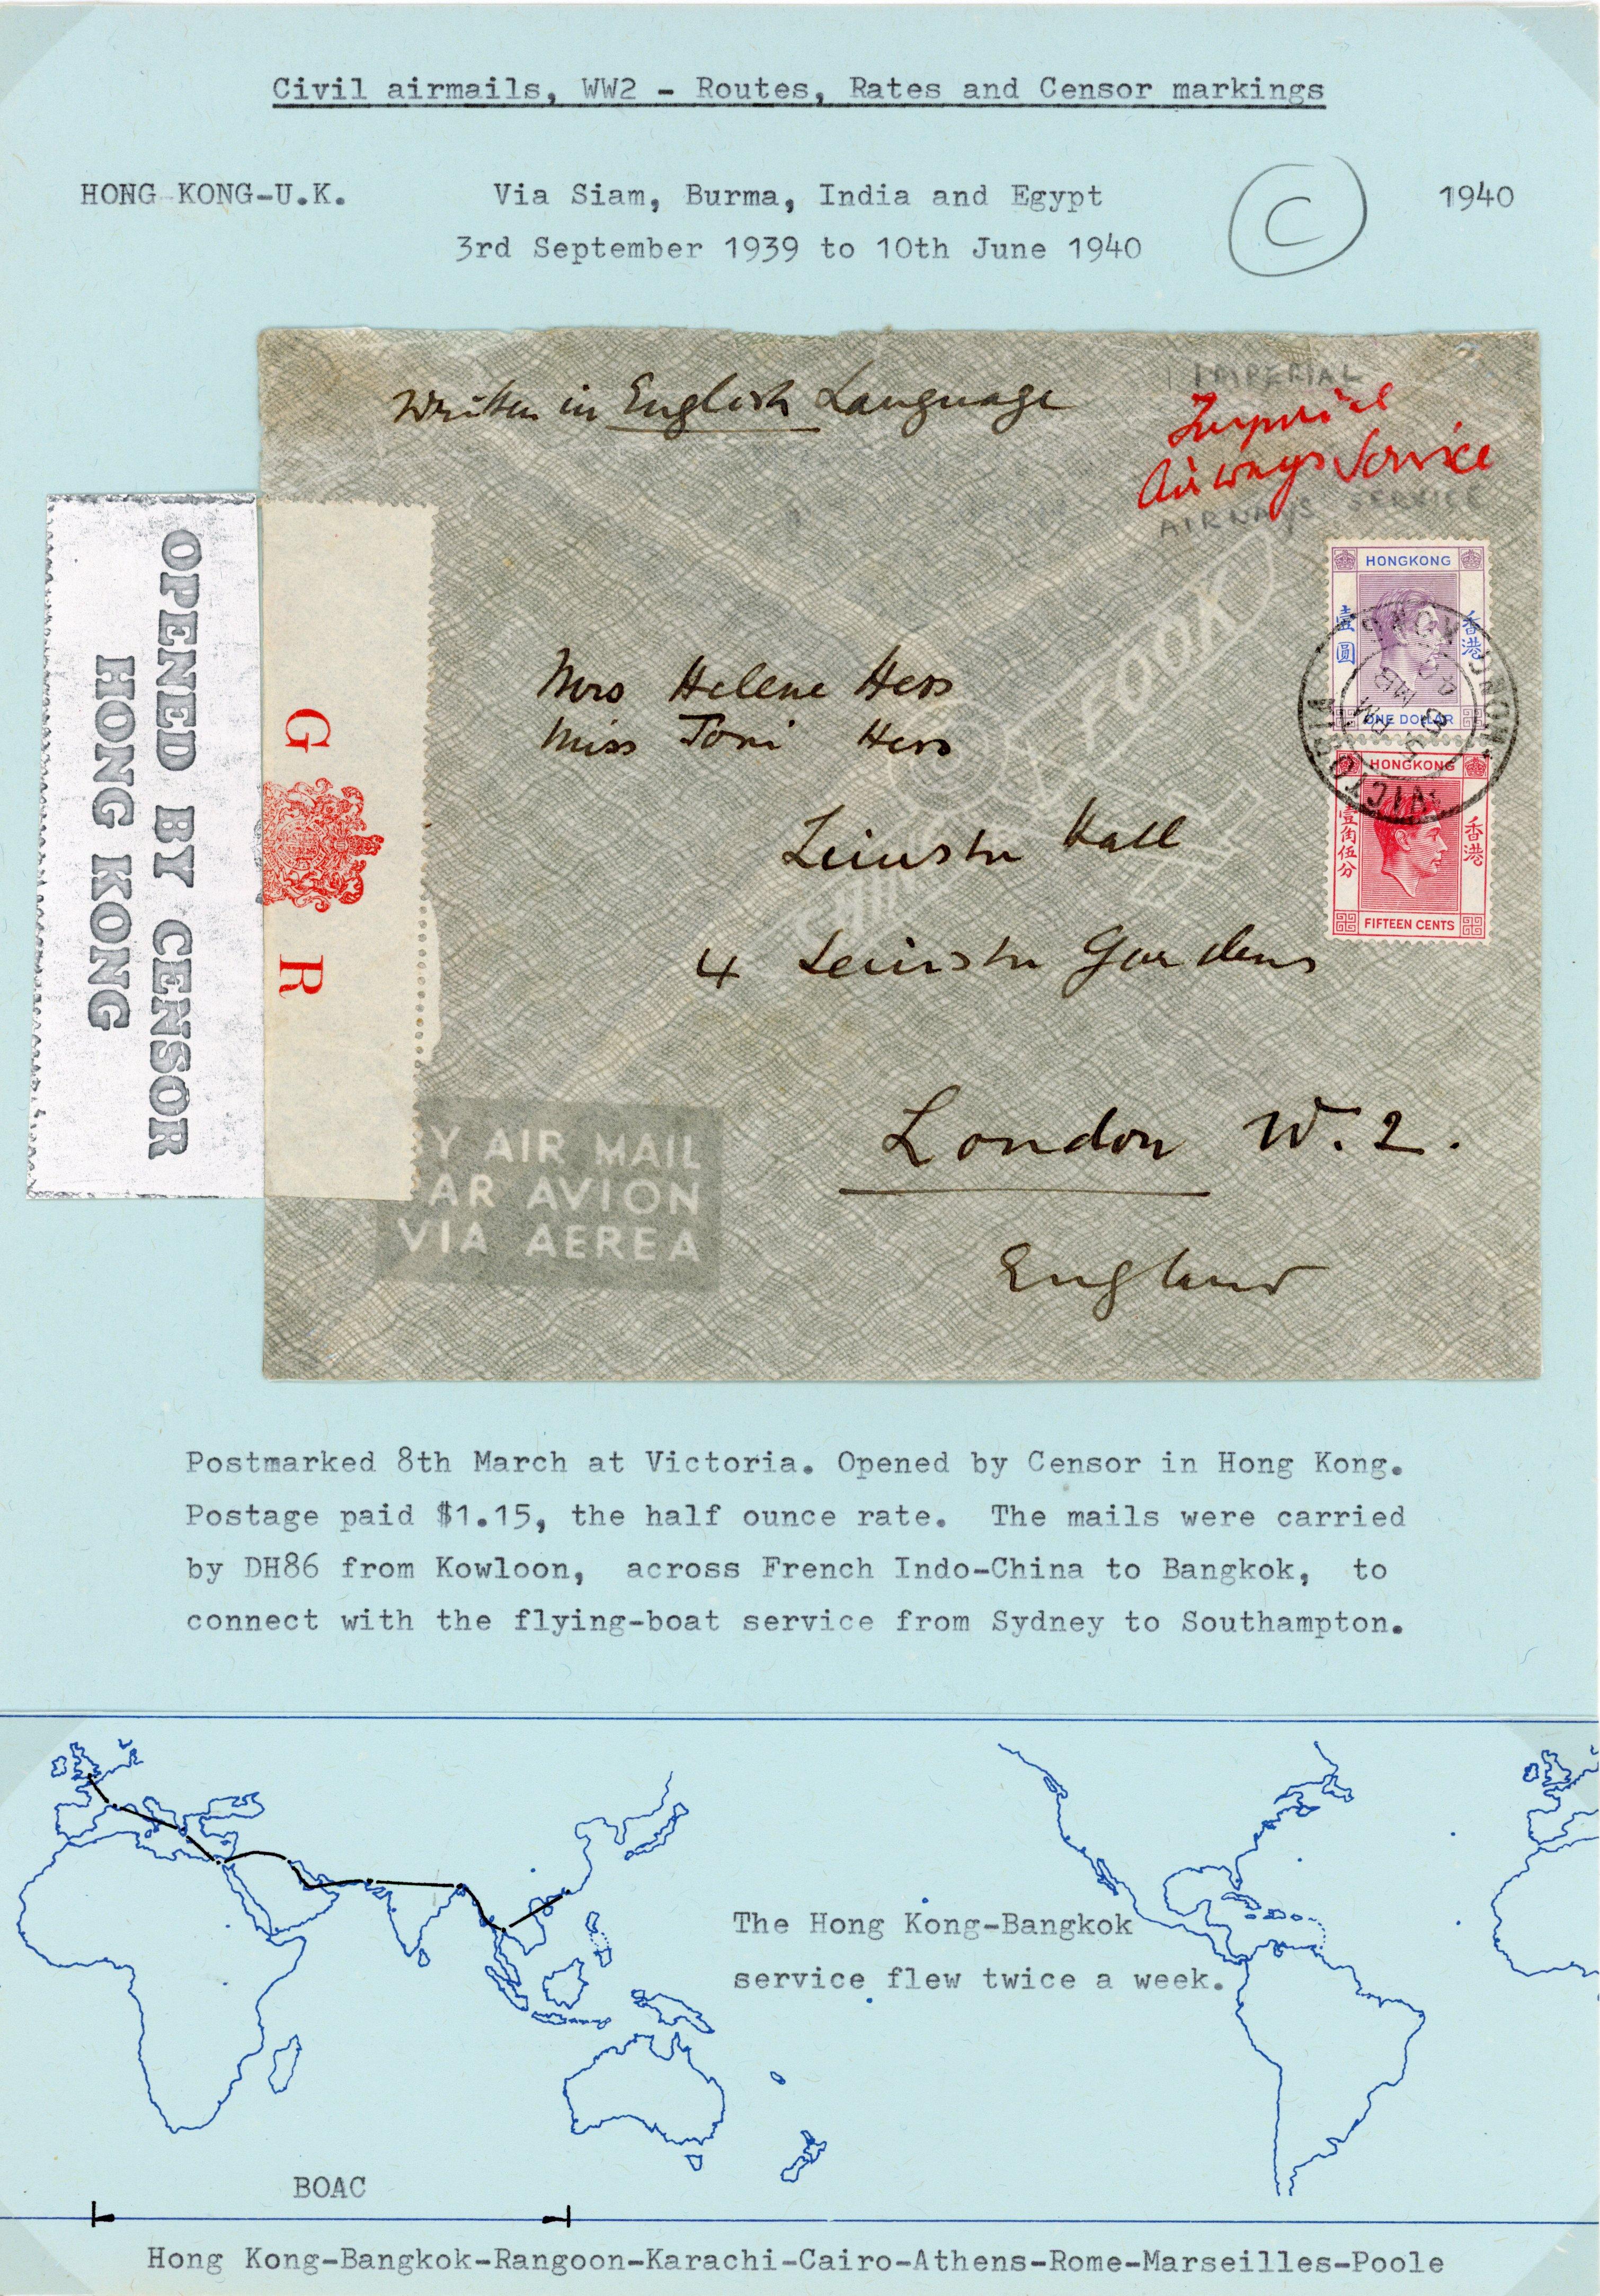 Civil airmails, WW2 - Routes, Rates and Censor markings
HONG KONG-U.K.
Via Siam, Burma, India and Egypt
1940
3rd September 1939 to 10th June 1940
C
Written in English Language
IMPERIAL
Imperial
Airways Service
AIRWAYS SERVICE
OPENED BY CENSOR
HONG KONG
G R
HONGKONG
壹圓
香港
ONE DOLLAR
VICTORIA HONG KONG
5 PM
8 MR
40
HONGKONG
壹角伍分
香港
FIFTEEN CENTS
Mrs Helene Hess
Miss Toni Hess
Leinster Hall
4 Leinster Gardens
London W. 2.
England
Y AIR MAIL
AR AVION
VIA AEREA
Postmarked 8th March at Victoria. Opened by Censor in Hong Kong.
Postage paid $1.15, the half ounce rate. The mails were carried
by DH86 from Kowloon, across French Indo-China to Bangkok, to
connect with the flying-boat service from Sydney to Southampton.
The Hong Kong-Bangkok
service flew twice a week.
BOAC
Hong Kong-Bangkok-Rangoon-Karachi-Cairo-Athens-Rome-Marseilles-Poole